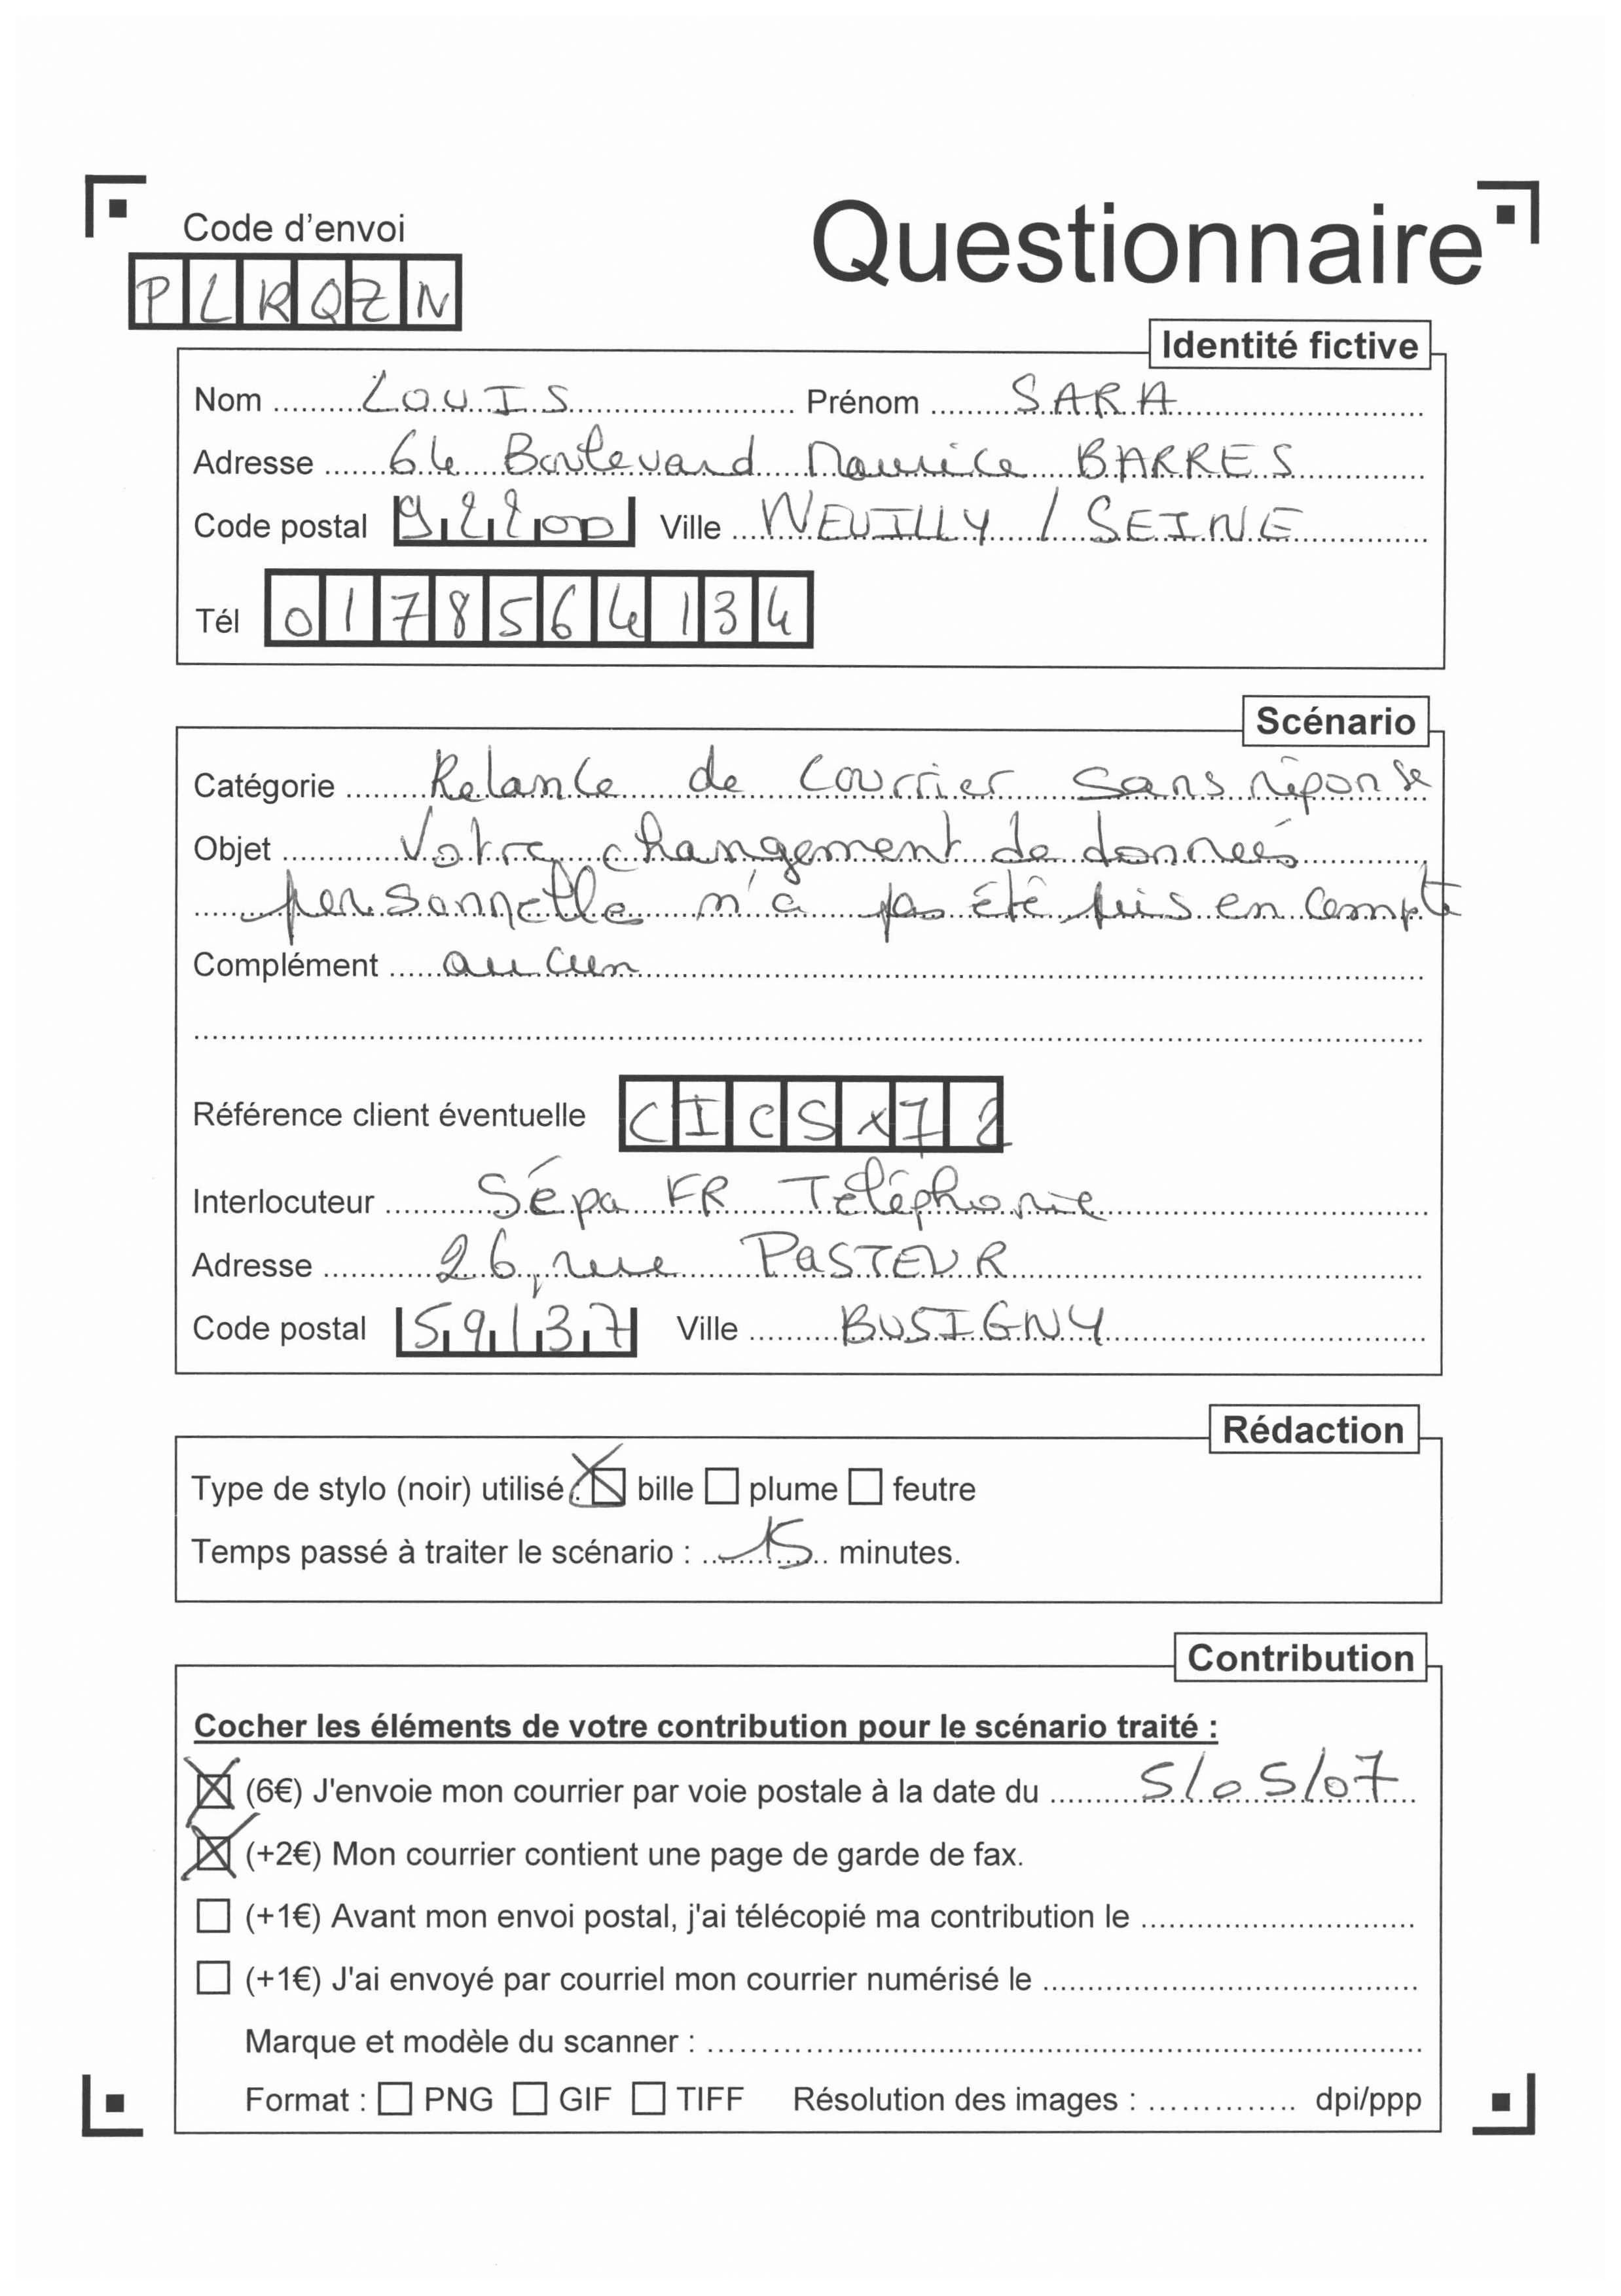 Code d'envoi
Questionnaire
PLRQZN
Identité fictive
Nom LOUIS Prénom SARA
Adresse 64 Boulevard Maurice BARRES
Code postal 92200 Ville NEUILLY / SEINE
Tél 0178564134
Scénario
Catégorie Relance de Courrier Sans réponse
Objet Votre changement de données
personnelle n'a pas été pris en compte
Complément aucun
Référence client éventuelle CICSX72
Interlocuteur Sépa FR Téléphonie
Adresse 26, rue PASTEUR
Code postal 59137 Ville BUSIGNY
Rédaction
Type de stylo (noir) utilisé : bille plume feutre
Temps passé à traiter le scénario : 15 minutes.
Contribution
Cocher les éléments de votre contribution pour le scénario traité :
(6€) J'envoie mon courrier par voie postale à la date du 5/05/07
(+2€) Mon courrier contient une page de garde de fax.
(+1€) Avant mon envoi postal, j'ai télécopié ma contribution le
(+1€) J'ai envoyé par courriel mon courrier numérisé le
Marque et modèle du scanner :
Format : PNG GIF TIFF Résolution des images : dpi/ppp